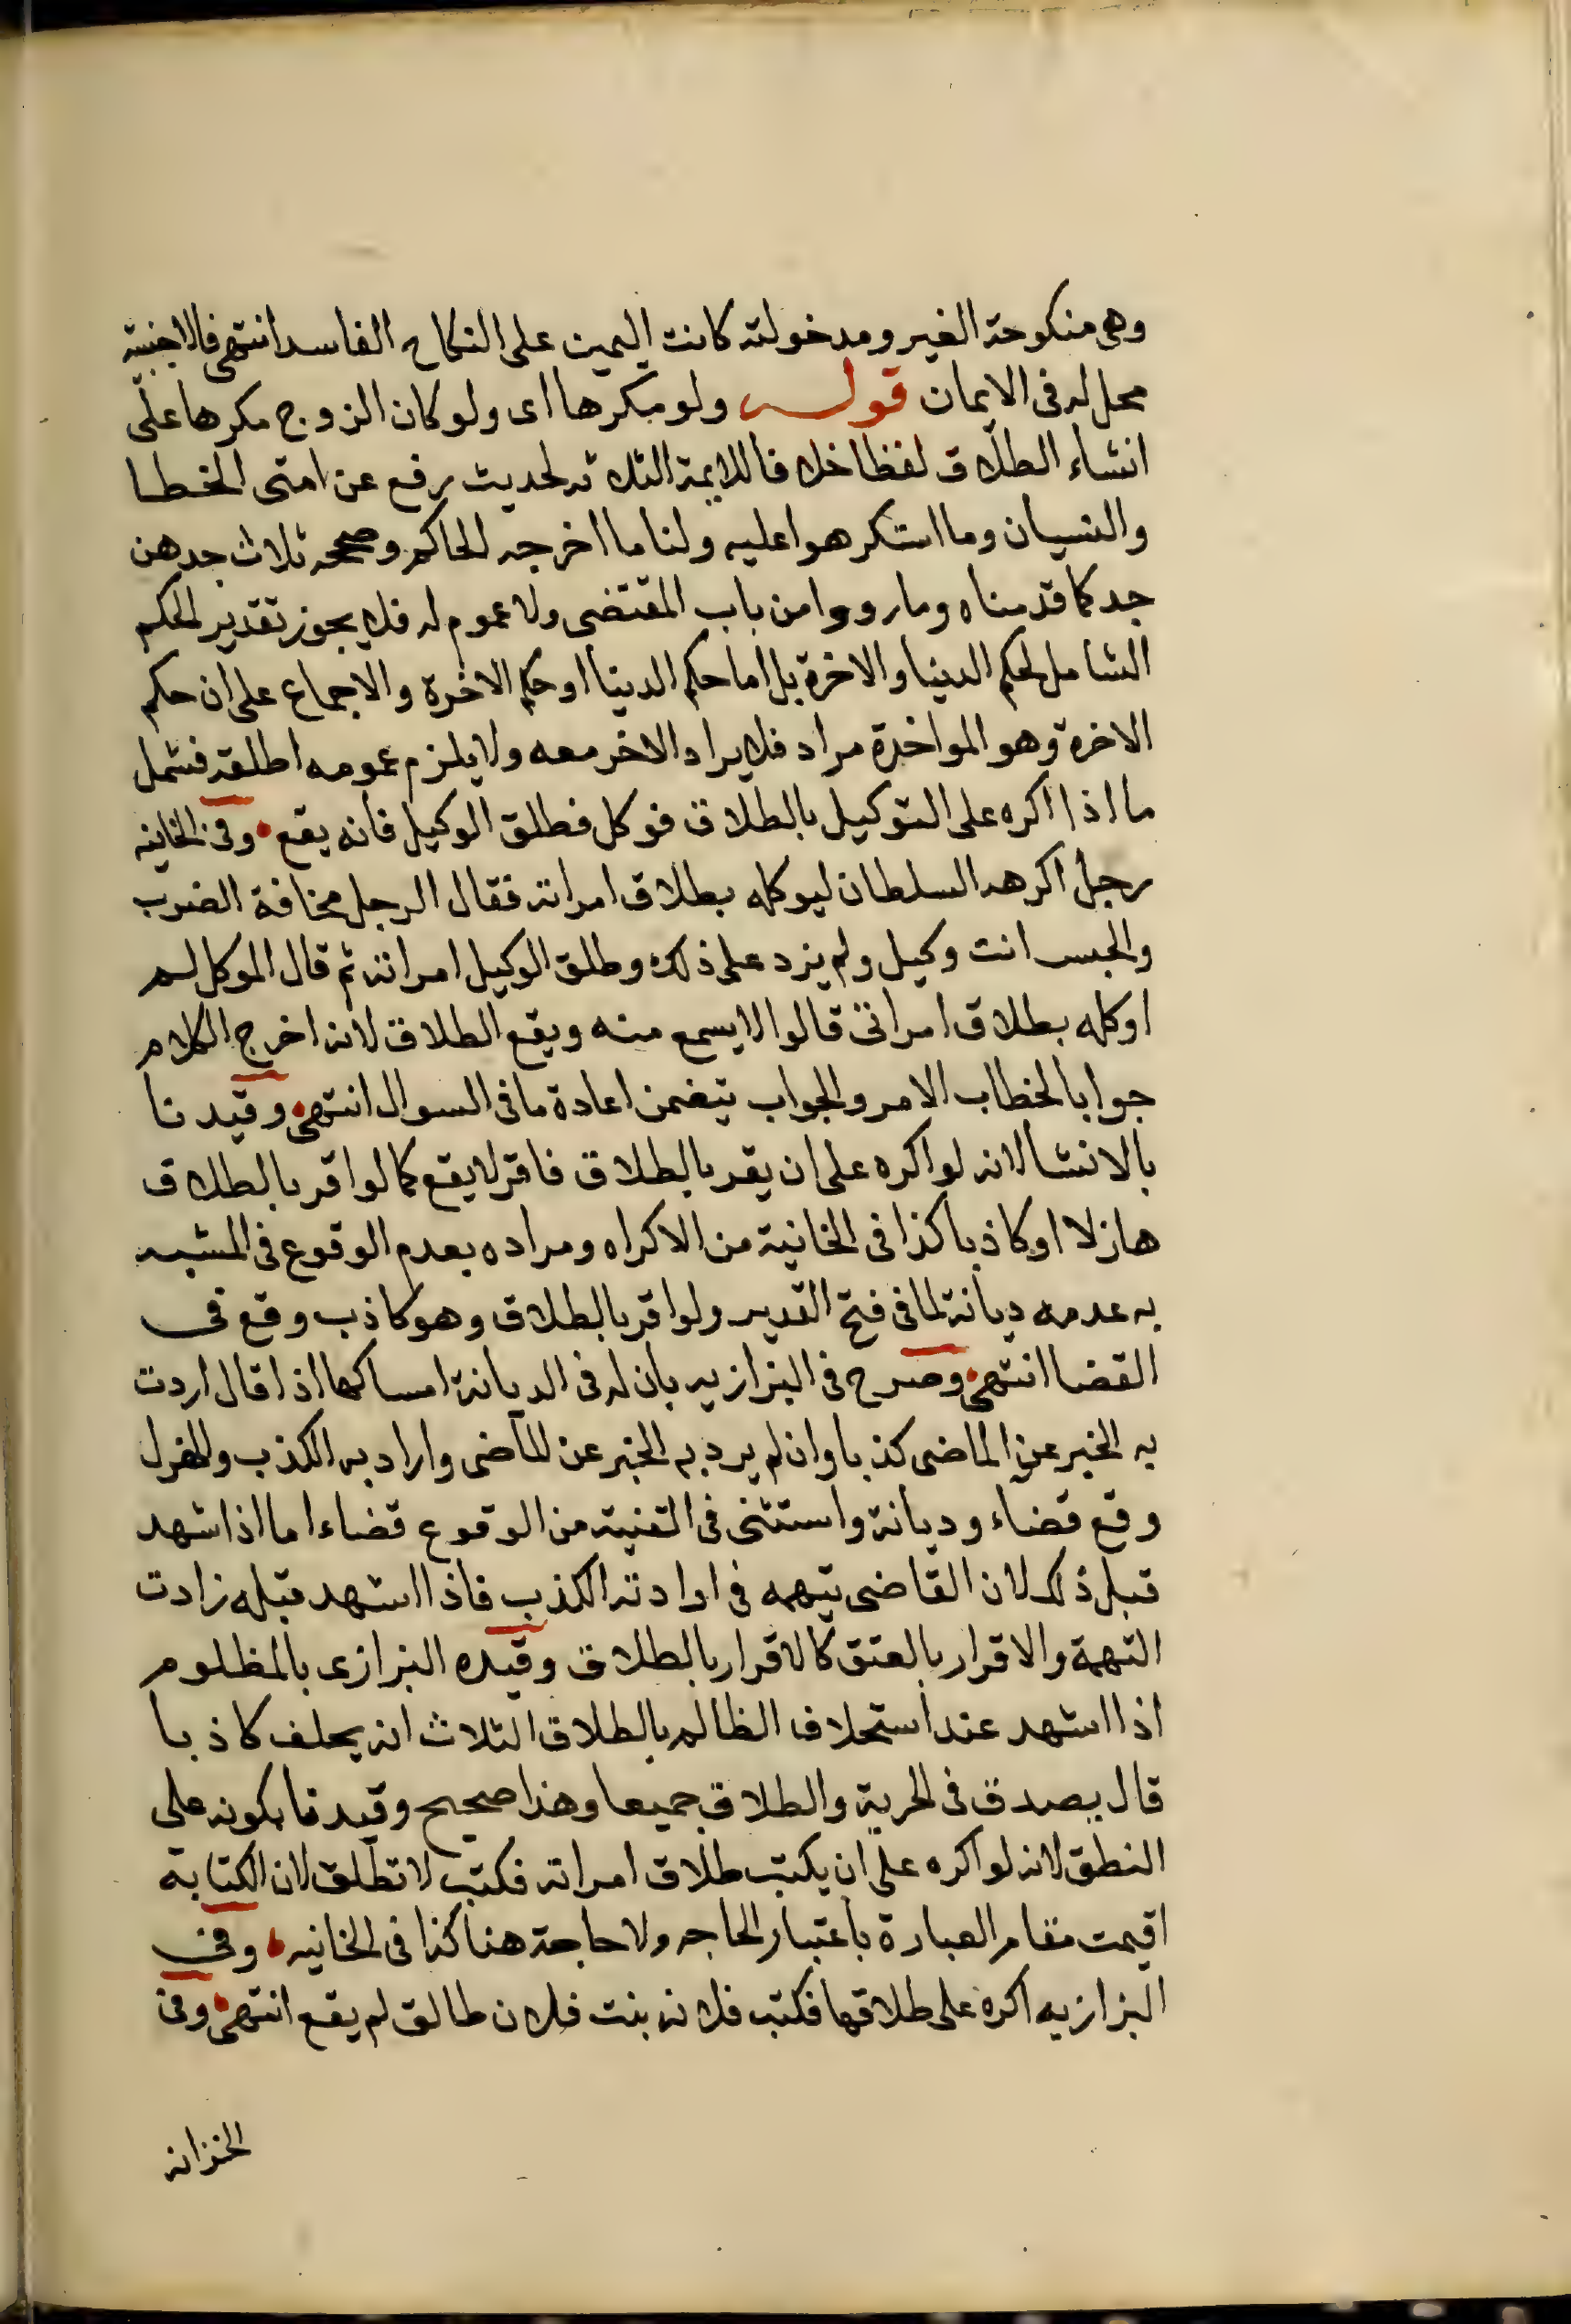 وهى منكوحة الغير ومدخولته كانت اليمين على النكاح الفاسد انتهى فالاجنبية
محل له فى الايمان قوله ولو مكرها اى ولو كان الزوج مكرها على
انشاء الطلاق لفظا خلافا للايمة الثلاثه لحديث رفع عن امتى الخطا
والنسيان وما استكرهوا عليه ولنا ما اخرجه الحاكم وصححه ثلاث جدهن
جد كما قدمناه وما رووا من باب المقتضى ولا عموم له فلا يجوز تقدير الحكم
الشامل لحكم الدنيا والاخرة بل اما حكم الدنيا او حكم الاخرة والاجماع على ان حكم
الاخرة وهو المواخذة مراد فلا يراد الاخر معه ولا يلزم عمومه اطلقه فشمل
ما اذا اكره على التوكيل بالطلاق فوكل فطلق الوكيل فانه يقع وفى الخانيه
رجل اكرهه السلطان ليوكله بطلاق امراته فقال الرجل مخافة الضرب
والحبس انت وكيل ولم يزد على ذلك وطلق الوكيل امراته ثم قال الموكل لم
اوكله بطلاق امراتى قالوا لا يسمع منه ويقع الطلاق لانه اخرج الكلام
جوابا لخطاب الامر والجواب يتضمن اعادة ما فى السوال انتهى وقيدنا
بالانشا لانه لو اكره على ان يقر بالطلاق فاقر لا يقع كما لو اقر بالطلاق
هازلا او كاذبا كذا فى الخانية من الاكراه ومراده بعدم الوقوع فى المشبه
به عدمه ديانة لما فى فتح القدير ولو اقر بالطلاق وهو كاذب وقع فى
القضا انتهى وصرح فى البزازيه بان له فى الديانة امساكها اذا قال اردت
به الخبر عن الماضى كذبا وان لم يرد به الخبر عن الماضى واراد به الكذب والهزل
وقع قضاء وديانة واستثنى فى القنية من الوقوع قضاء اما اذا شهد
قبل ذلك لان القاضى يتهمه فى ارادته الكذب فاذا اشهد قبله زادت
التهمة والاقرار بالعتق كالاقرار بالطلاق وقيده البزازى بالمظلوم
اذا اشهد عند استحلاف الظالم بالطلاق الثلاث انه يحلف كاذبا
قال يصدق فى الحرية والطلاق جميعا وهذا صحيح وقيدنا بكونه على
النطق لانه لو اكره على ان يكتب طلاق امراته فكتب لا تطلق لان الكتابة
اقيمت مقام العبارة باعتبار الحاجه ولا حاجة هنا كذا فى الخانيه وفى
البزازيه اكره على طلاقها فكتب فلانه بنت فلان طالق لم يقع انتهى وفى
الخزانه